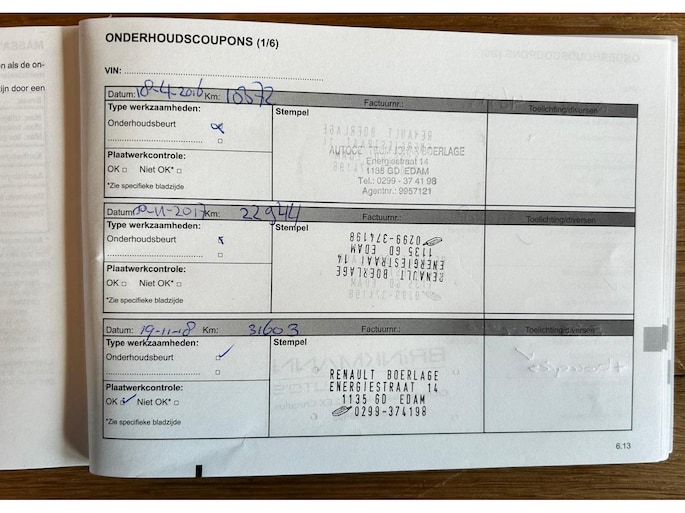 MASEA
ONDERHOUDSCOUPONS (1/6)
en als de on-
ijn door een
VIN:
Datum: 18-4-2016 Km: 10372 Factuurnr.: Toelichting/diversen
Type werkzaamheden:
Stempel
Onderhoudsbeurt
BOERLAGE
Energiestraat 14
Plaatwerkcontrole:
1135 GD EDAM
OK Niet OK*
Tel.: 0299 - 37 41 98
Agentnr.: 9957121
*Zie specifieke bladzijde
Datum: -11-2017 Km: 22944 Factuurnr.: Toelichting/diversen
Type werkzaamheden:
Stempel
Onderhoudsbeurt
RENAULT BOERLAGE
ENERGIESTRAAT 14
1135 GD EDAM
0299-374198
Plaatwerkcontrole:
OK Niet OK*
*Zie specifieke bladzijde
Datum: 19-11-18 Km: 31603 Factuurnr.: Toelichting/diversen
Type werkzaamheden:
Stempel
Onderhoudsbeurt
RENAULT BOERLAGE
ENERGIESTRAAT 14
1135 GD EDAM
0299-374198
Plaatwerkcontrole:
OK Niet OK*
*Zie specifieke bladzijde
6.13